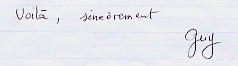 Voilà, sincèrement
Guy